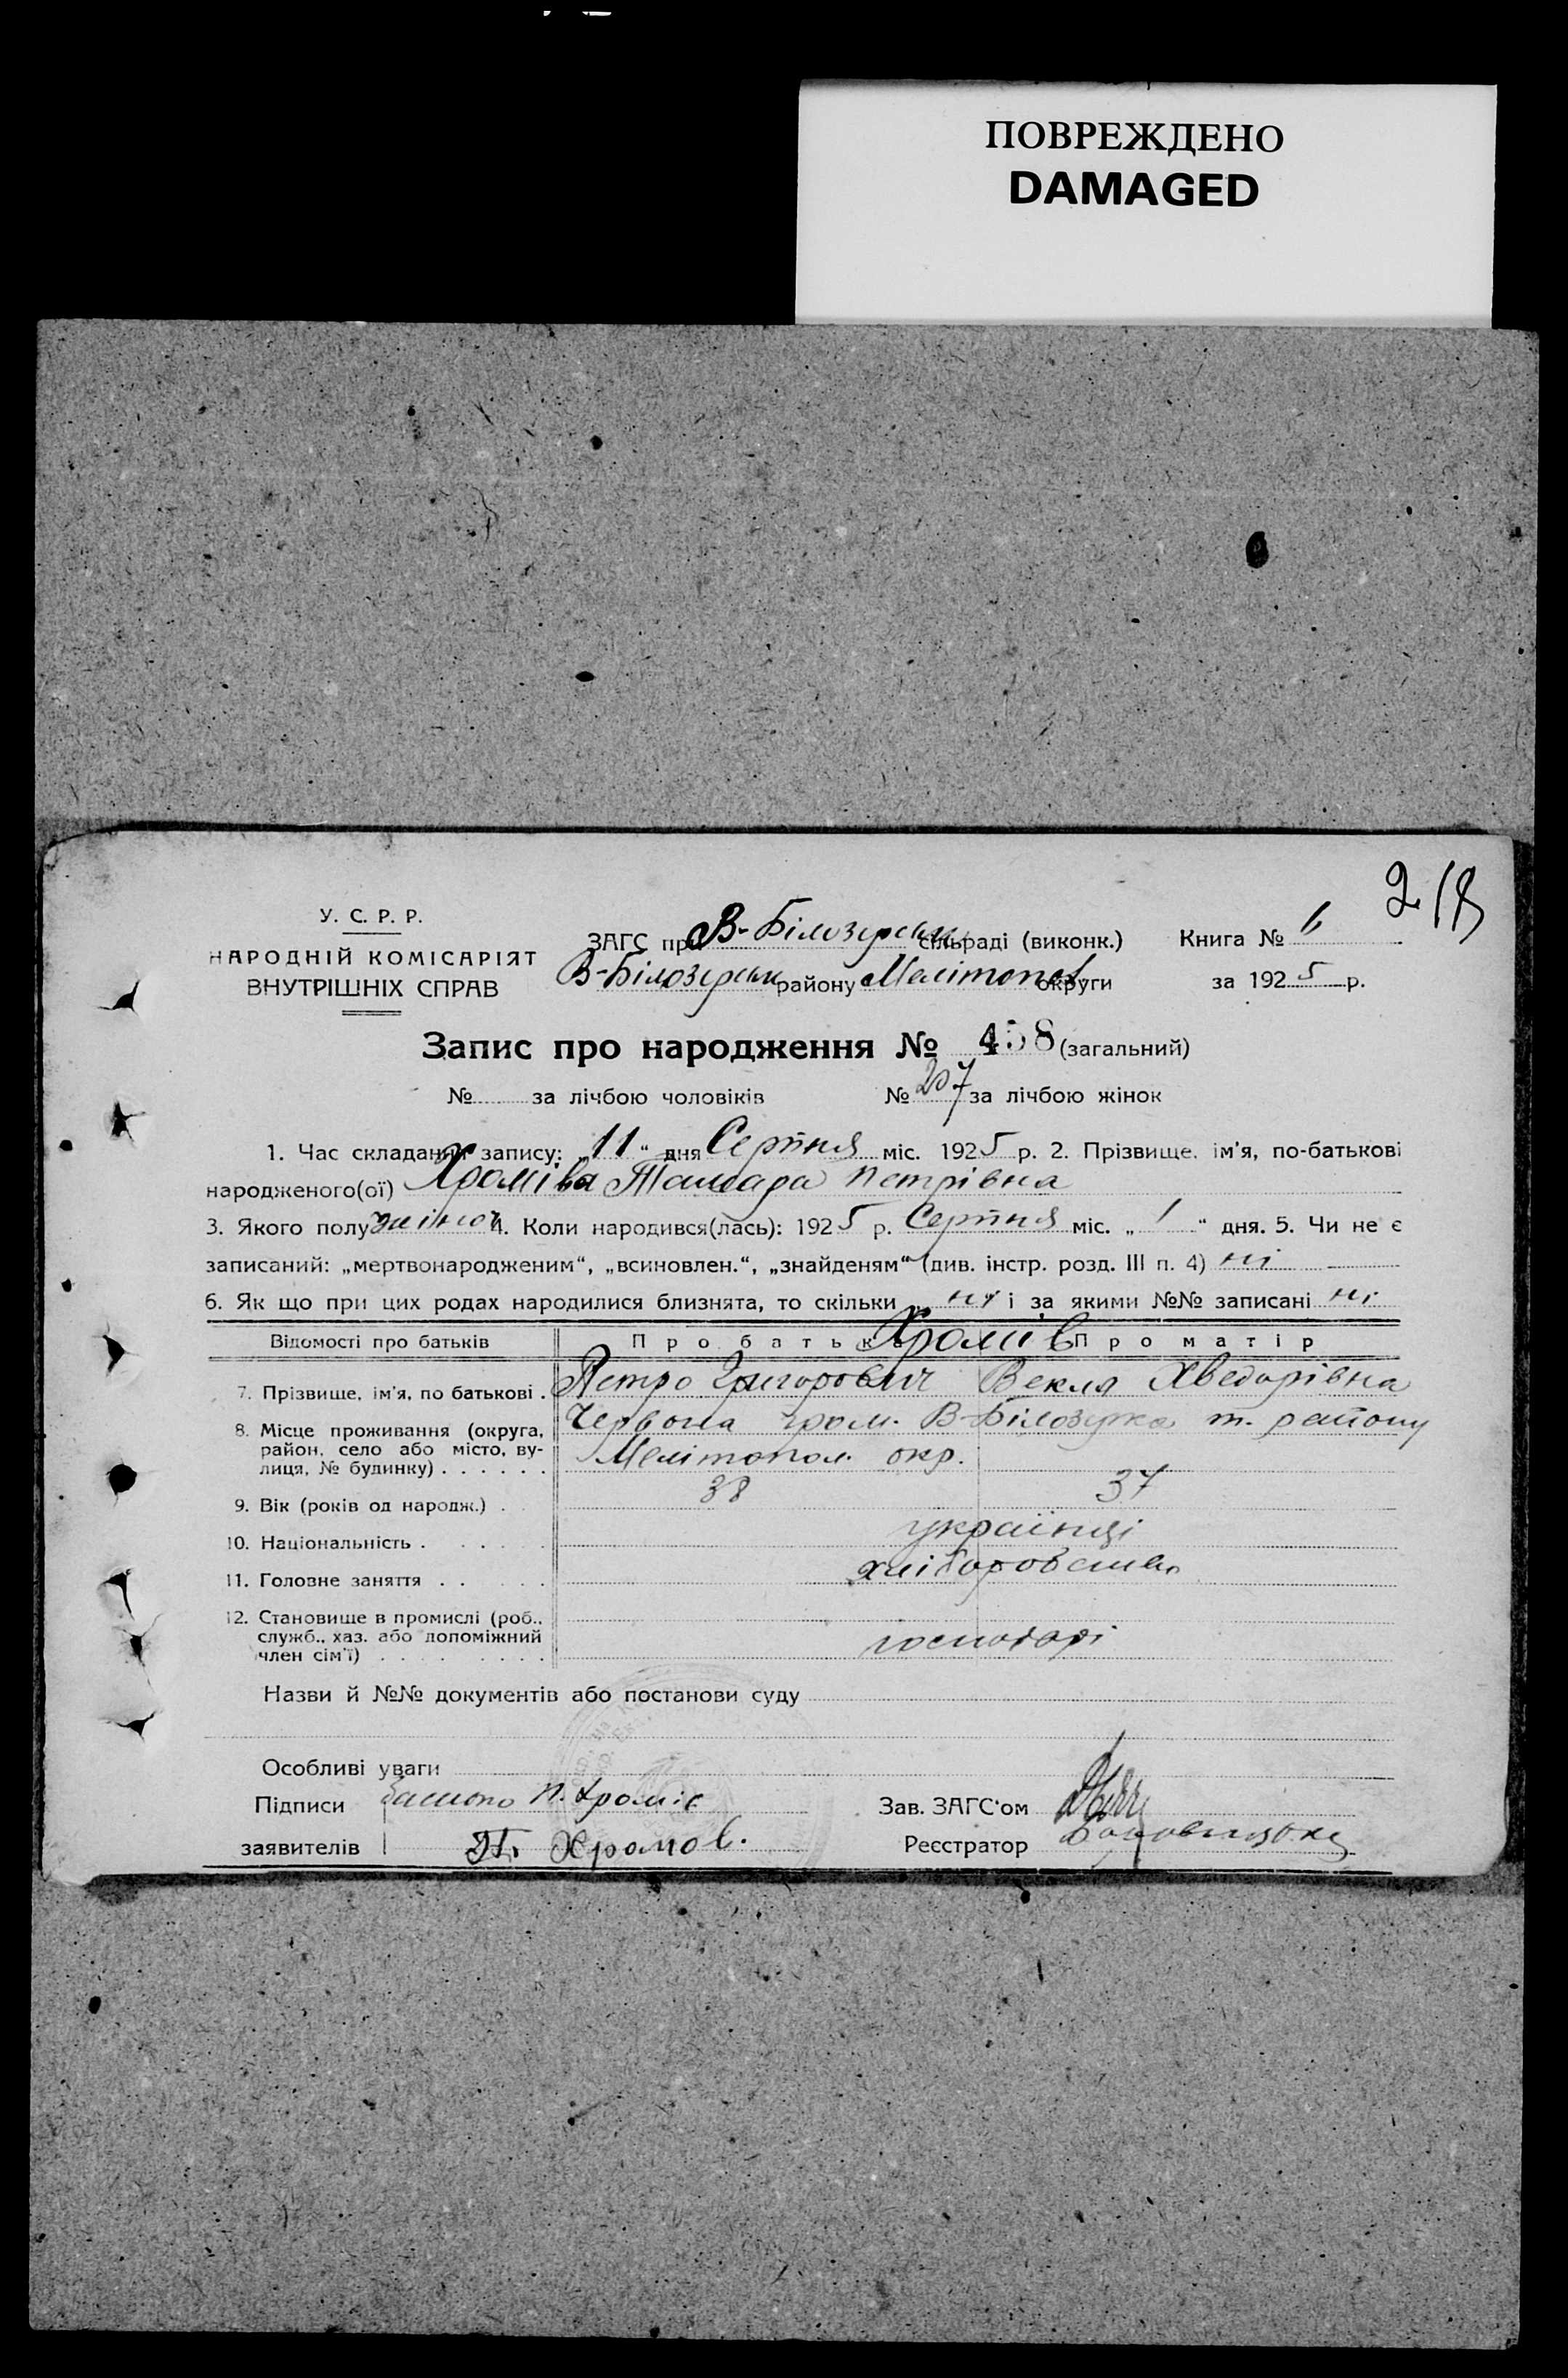 ПОВРЕЖДЕНО
DAMAGED
218
У. С. Р. Р.
НАРОДНІЙ КОМІСАРІЯТ
ВНУТРІШНІХ СПРАВ
ЗАГС при В-Білозерськ сільраді (виконк.)
В-Білозерськ району Мелітопол округи
Книга № 6
за 1925 р.
Запис про народження № 458 (загальний)
№ за лічбою чоловіків № 207 за лічбою жінок
1. Час складання запису: „11“ дня Серпня міс. 1925 р. 2. Прізвище, ім'я, по-батькові
народженого(ої) Хромїва Тамара Петрівна
3. Якого полу жіноч 4. Коли народився(лась): 1925 р. Серпня міс. „1“ дня. 5. Чи не є
записаний: „мертвонародженим“, „всиновлен.“, „знайденям“ (див. інстр. розд. III п. 4) ні
6. Як що при цих родах народилися близнята, то скільки ні і за якими №№ записані ні
Відомості про батьків Про батька Хромів Про матір
7. Прізвище, ім'я, по батькові . Петро Григорович Векла Хведорівна
8. Місце проживання (округа, район, село або місто, вулиця, № будинку) . . . . . . Червона гром. В-Білозерка т. району
Мелітопол. окр.
9. Вік (років од народж.) . 38 37
10. Національність . . . . . українці
11. Головне заняття . . . . . хліборобство
12. Становище в промислі (роб., служб., хаз. або допоміжний член сім'ї) . . . . . . . . господарі
Назви й №№ документів або постанови суду
Особливі уваги
Підписи Батько П. Хромів
заявителів П. Хромов.
Зав. ЗАГС'ом
Реєстратор